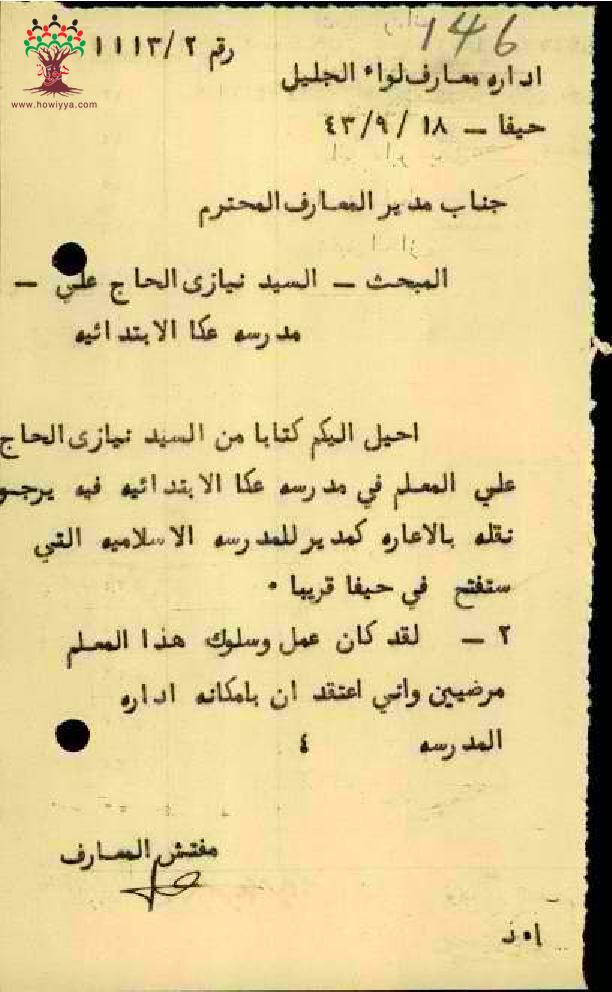 146
رقم ١١١٣/٢
www.howiyya.com
اداره معارف لواء الجليل
حيفا — ٤٣/٩/١٨
جناب مدير المعارف المحترم
المبحث — السيد نيازى الحاج علي —
مدرسه عكا الابتدائيه
احيل اليكم كتابا من السيد نيازى الحاج
علي المعلم في مدرسه عكا الابتدائيه فيه يرجو
نقله بالاعاره كمدير للمدرسه الاسلاميه التي
ستفتح في حيفا قريبا ٠
٢ — لقد كان عمل وسلوك هذا المعلم
مرضيين واني اعتقد ان بامكانه اداره
المدرسه ٤
مفتش المعارف